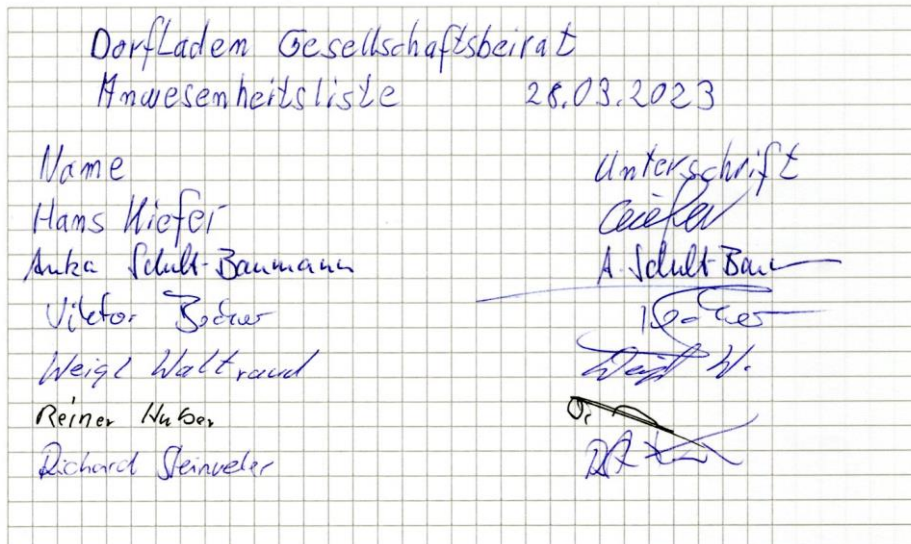 DorfLaden Gesellschaftsbeirat
Anwesenheitsliste 28.03.2023
Name Unterschrift
Hans Kiefer
Anka Schult-Baumann A. Schult-Bau
Viktor
Weigl Waltraud Weigl W.
Reiner Huber
Richard